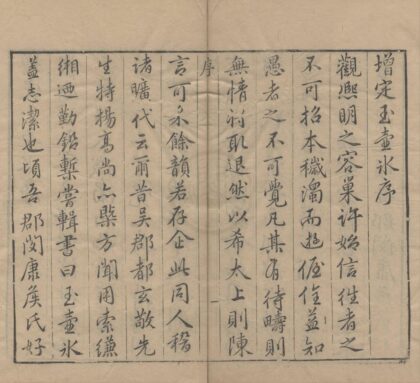 增定玉壺冰序
觀熙明之容巢許始信往者之
不可招本穢濁而遊偓佺益知
愚者之不可覺凡其有待疇則
無情苟取退然以希太上則陳
序
一
言可永餘韻若存企此同人稽
諸曠代云爾昔吳郡都玄敬先
生特揚高尚亦槩方聞用索縑
緗迺勤鉛槧嘗輯書曰玉壺冰
蓋志潔也頃吾郡閔康侯氏好